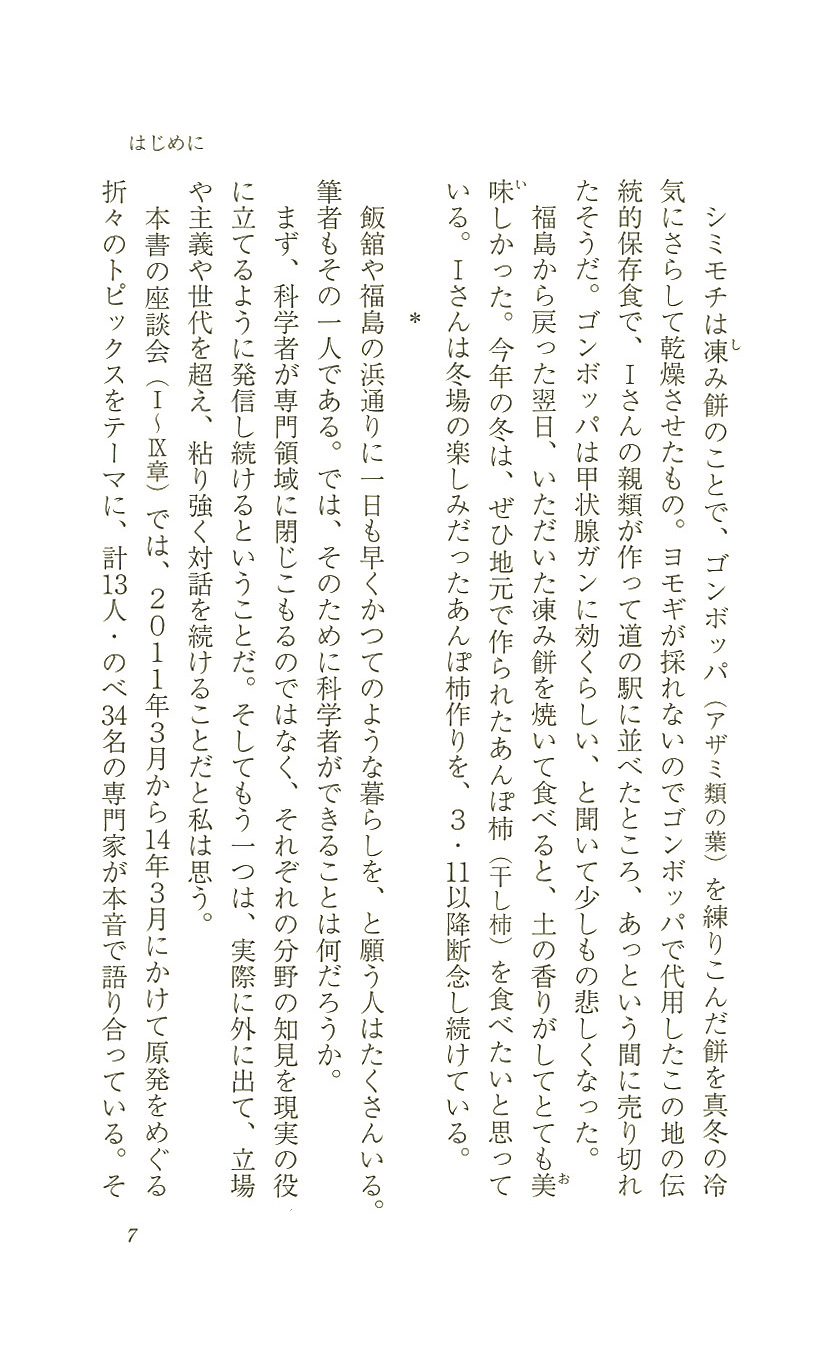 はじめに
シミモチは凍み餅のことで、ゴンボッパ（アザミ類の葉）を練りこんだ餅を真冬の冷
気にさらして乾燥させたもの。ヨモギが採れないのでゴンボッパで代用したこの地の伝
統的保存食で、Ｉさんの親類が作って道の駅に並べたところ、あっという間に売り切れ
たそうだ。ゴンボッパは甲状腺ガンに効くらしい、と聞いて少しもの悲しくなった。
福島から戻った翌日、いただいた凍み餅を焼いて食べると、土の香りがしてとても美
味しかった。今年の冬は、ぜひ地元で作られたあんぽ柿（干し柿）を食べたいと思って
いる。Ｉさんは冬場の楽しみだったあんぽ柿作りを、３・11以降断念し続けている。
＊
飯舘や福島の浜通りに一日も早くかつてのような暮らしを、と願う人はたくさんいる。
筆者もその一人である。では、そのために科学者ができることは何だろうか。
まず、科学者が専門領域に閉じこもるのではなく、それぞれの分野の知見を現実の役
に立てるように発信し続けるということだ。そしてもう一つは、実際に外に出て、立場
や主義や世代を超え、粘り強く対話を続けることだと私は思う。
本書の座談会（Ⅰ～Ⅸ章）では、２０１１年３月から14年３月にかけて原発をめぐる
折々のトピックスをテーマに、計13人・のべ34名の専門家が本音で語り合っている。そ
7